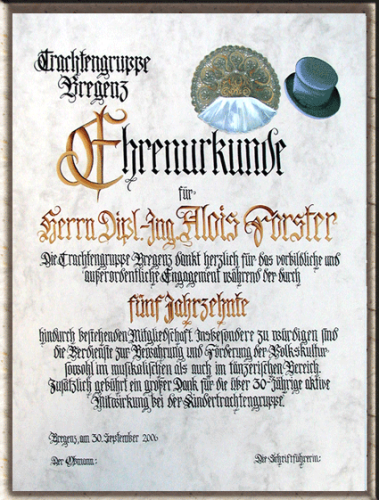 Trachtengruppe
Bregenz
Ehrenurkunde
für
Herrn Dipl.-Ing. Alois Forster
Die Trachtengruppe Bregenz dankt herzlich für das vorbildliche und
außerordentliche Engagement während der durch
fünf Jahrzehnte
hindurch bestehenden Mitgliedschaft. Insbesondere zu würdigen sind
die Verdienste zur Bewahrung und Förderung der Volkskultur
sowohl im musikalischen als auch im tänzerischen Bereich.
Zusätzlich gebührt ein großer Dank für die über 30-Jährige aktive
Mitwirkung bei der Kindertrachtengruppe.
Bregenz, am 30. September 2006
Der Obmann:
Die Schriftführerin: